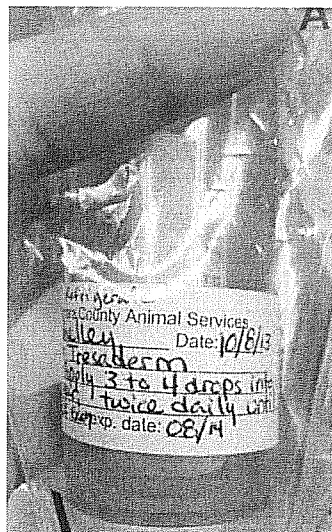 A
County Animal Services
Date: 10/8/13
Tresaderm
3 to 4 drops into
twice daily until
exp. date: 08/14